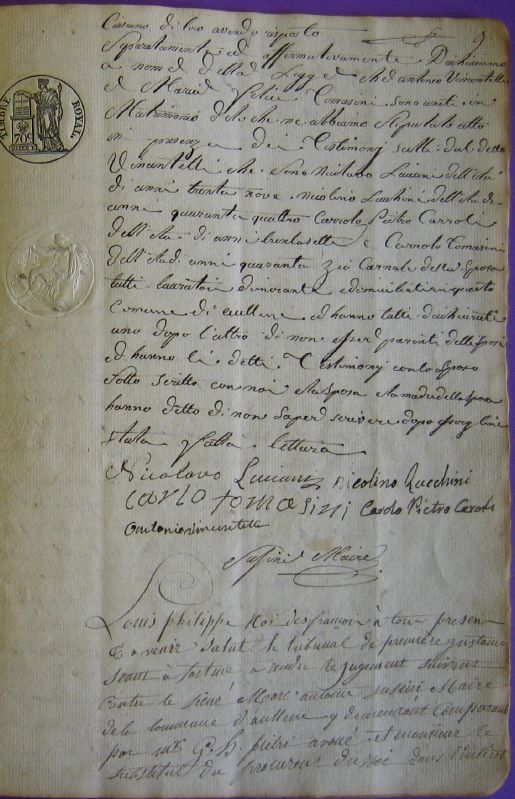 Ciascuno di loro avendo risposto
Separatamente ed affermativamente Dichiariamo
a nome della Legge che Antonio Vincentelli
e Maria Felice Tomasini sono uniti in
Matrimonio di che ne abbiamo stipulato atto
in presenza dei Testimonj scelti dal detto
Vincentelli che sono Nicolavo Luciani dell'età
di anni trenta nove Nicolino Lucchini dell'età di
anni quaranta quattro Carlo Pietro Carroli
dell'età di anni trenta sette e Carlo Tomasini
dell'età di anni quaranta Zio Carnale della Sposa
tutti lavoratori dimoranti e domiciliati in questo
Comune di Aullene ed hanno tutti dichiarati
uno dopo l'altro di non esser parenti delli Sposi
ed hanno li detti Testimonj con lo Sposo
Sotto scritto con noi e la Sposa e la madre della Sposa
hanno detto di non saper scrivere dopo
stata fatta lettura
Nicolavo Luciani Nicolino Lucchini
Carlo Tomasini Carolo Pietro Caroli
Antonio vincentelli
Susini Maire
Louis Philippe Roi des françois à tous presen
& a venir salut le tribunal de première instance
seant à Sartene a rendu le jugement suivant
Entre le sieur Marc antoine susini Maire
de la commune d'aullene y demeurant comparant
par mr G. B. pietri avoué et monsieur le
substitut du procureur du roi dans l'intérêt
TIMBRE ROYAL.